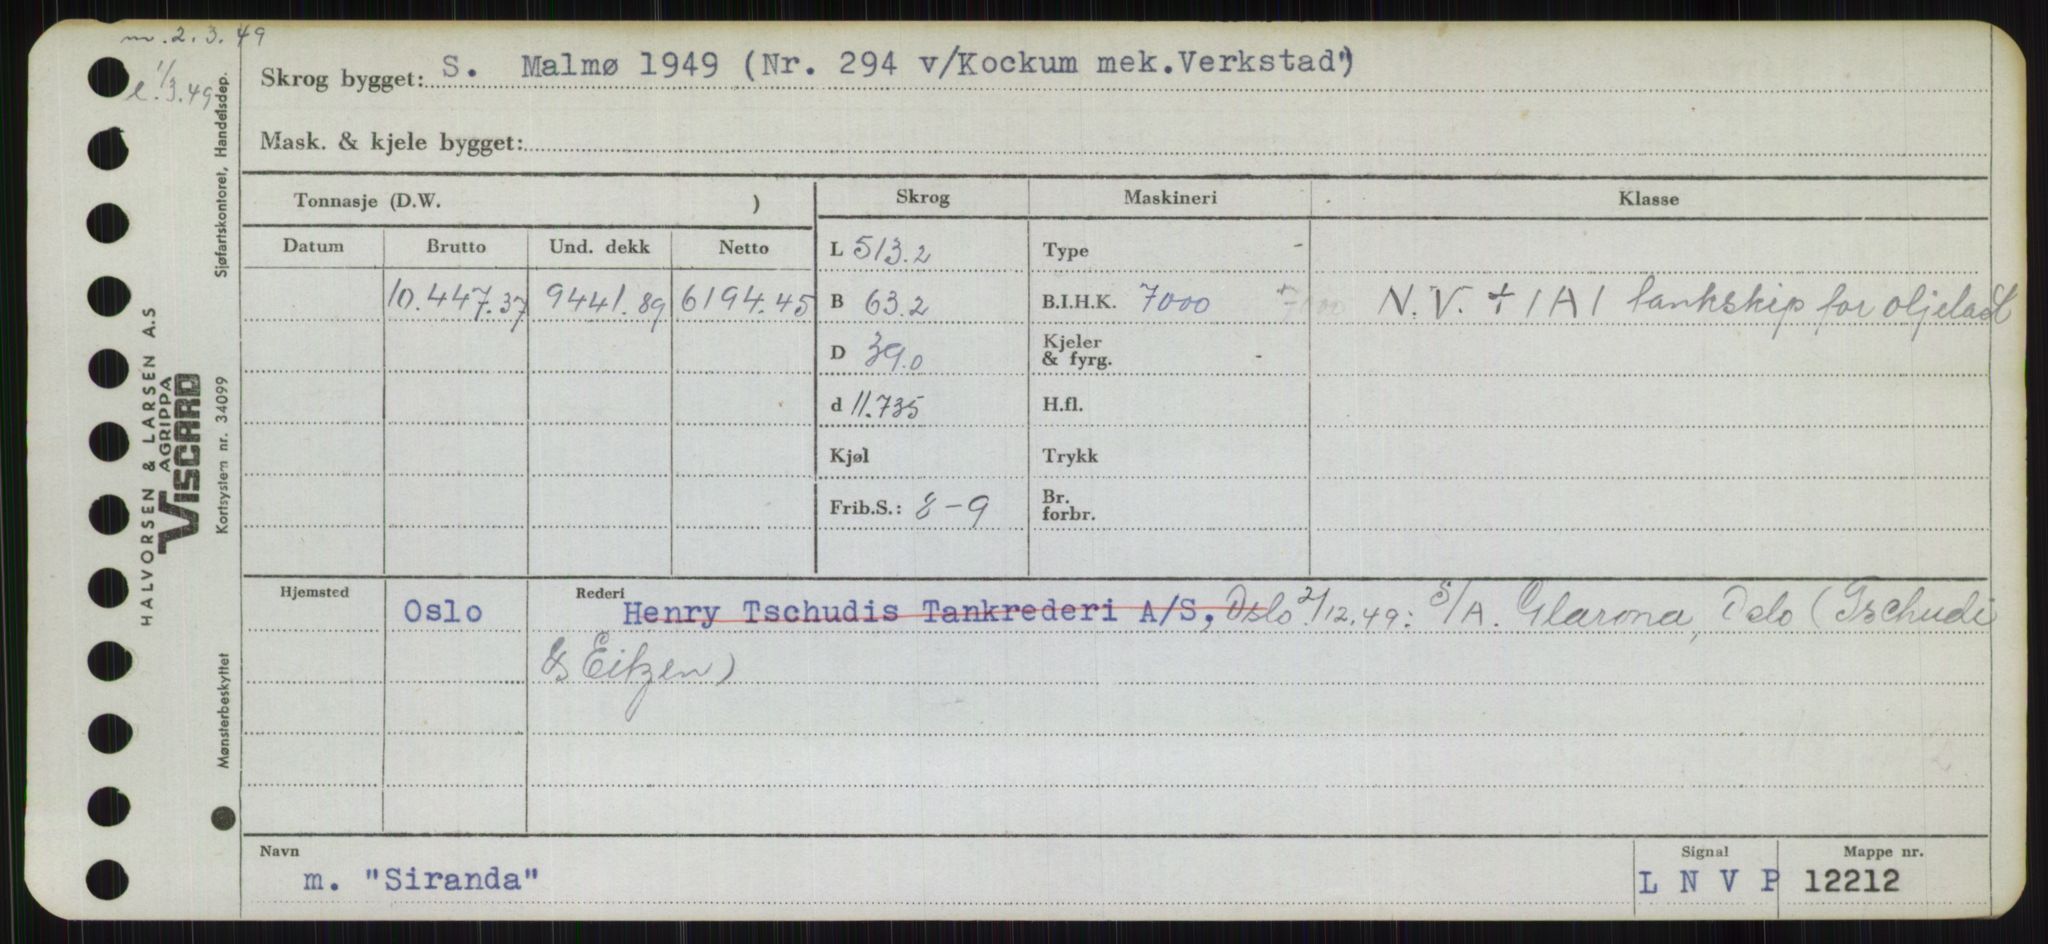 m. 2.3.49
e. 1/3.49
Skrog bygget: S. Malmø 1949 (Nr. 294 v/Kockum mek.Verkstad")
Mask. & kjele bygget:
Tonnasje (D.W. )
Skrog
Maskineri
Klasse
Datum Brutto Und. dekk Netto
L 513.2
Type -
10.447.37 9441.89 6194.45
B 63.2
B.I.H.K. 7000 7000
N.V. + 1A1 tankskip for oljelast
D 39.0
Kjeler
& fyrg. -
d 11.735
H.fl.
Kjøl
Trykk
Frib.S.: 8-9
Br.
forbr.
Hjemsted Oslo
Rederi Henry Tschudis Tankrederi A/S, Oslo. 2/12.49: S/A. Glarona, Oslo (Tschudi
& Eitzen)
Navn
m. "Siranda"
Signal
L N V P
Mappe nr.
12212
Sjøfartskontoret, Handelsdep.
Kortsystem nr. 34099
Mønsterbeskyttet
HALVORSEN & LARSEN A.S
AGRIPPA
VISCARD